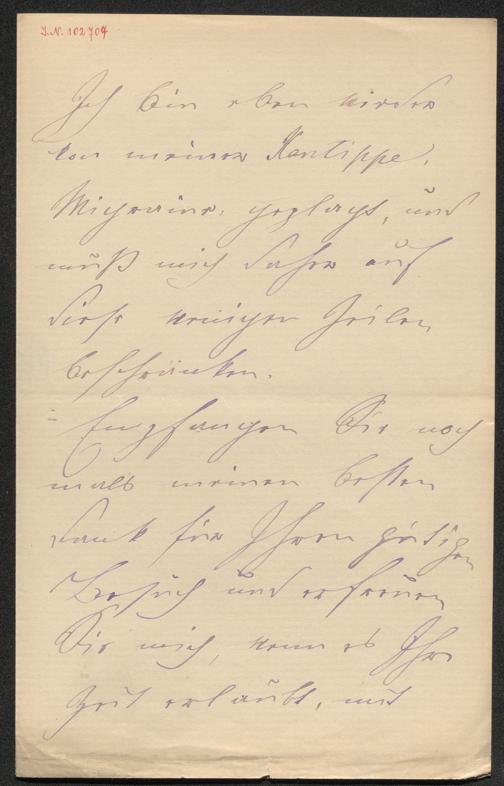 I.N. 102704
Ich bin eben wieder
von meiner Xantippe,
Migraine, geplagt, und
muß mich daher auf
diese wenigen Zeilen
beschränken.
Empfangen Sie noch
mals meinen besten
Dank für Ihren gütigen
Besuch und erfreuen
Sie mich, wenn es Ihre
Zeit erlaubt, mit